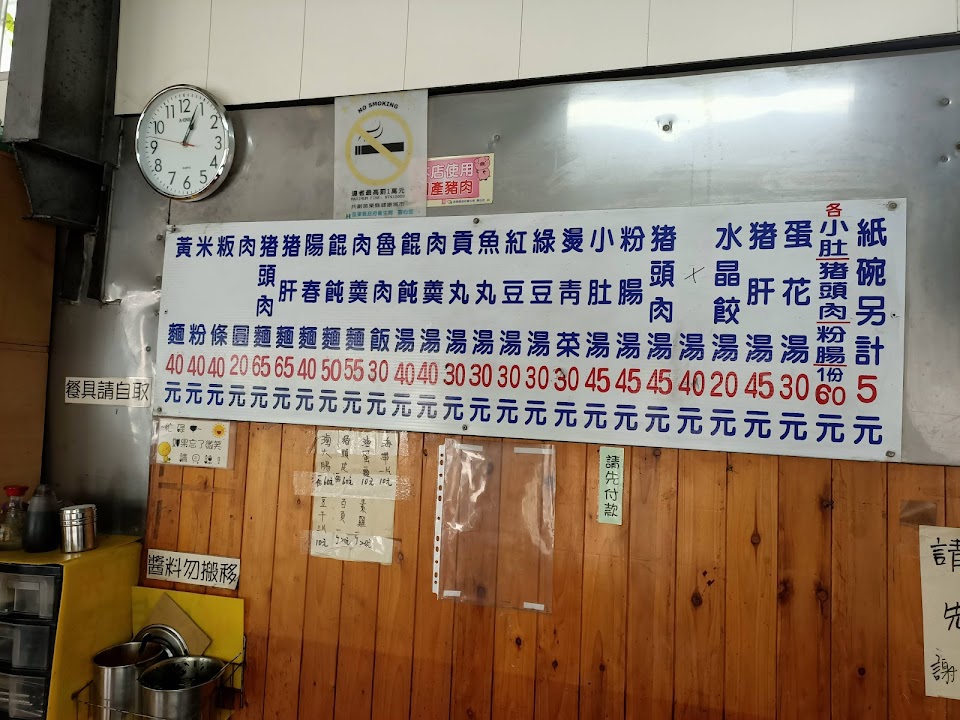 NO SMOKING
違者最高罰1萬元
本店使用
國產豬肉
黃麵40元
米粉40元
粄條40元
肉圓20元
猪頭肉麵65元
猪肝麵65元
陽春麵40元
餛飩麵50元
肉羹麵55元
魯肉飯30元
餛飩湯40元
肉羹湯40元
貢丸湯30元
魚丸湯30元
紅豆湯30元
綠豆湯30元
燙青菜30元
小肚湯45元
粉腸湯45元
猪頭肉湯45元
湯40元
水晶餃湯20元
猪肝湯45元
蛋花湯30元
各小肚猪頭肉粉腸1份60元
紙碗另計5元
餐具請自取
請先付款
醬料勿搬移
請先
謝